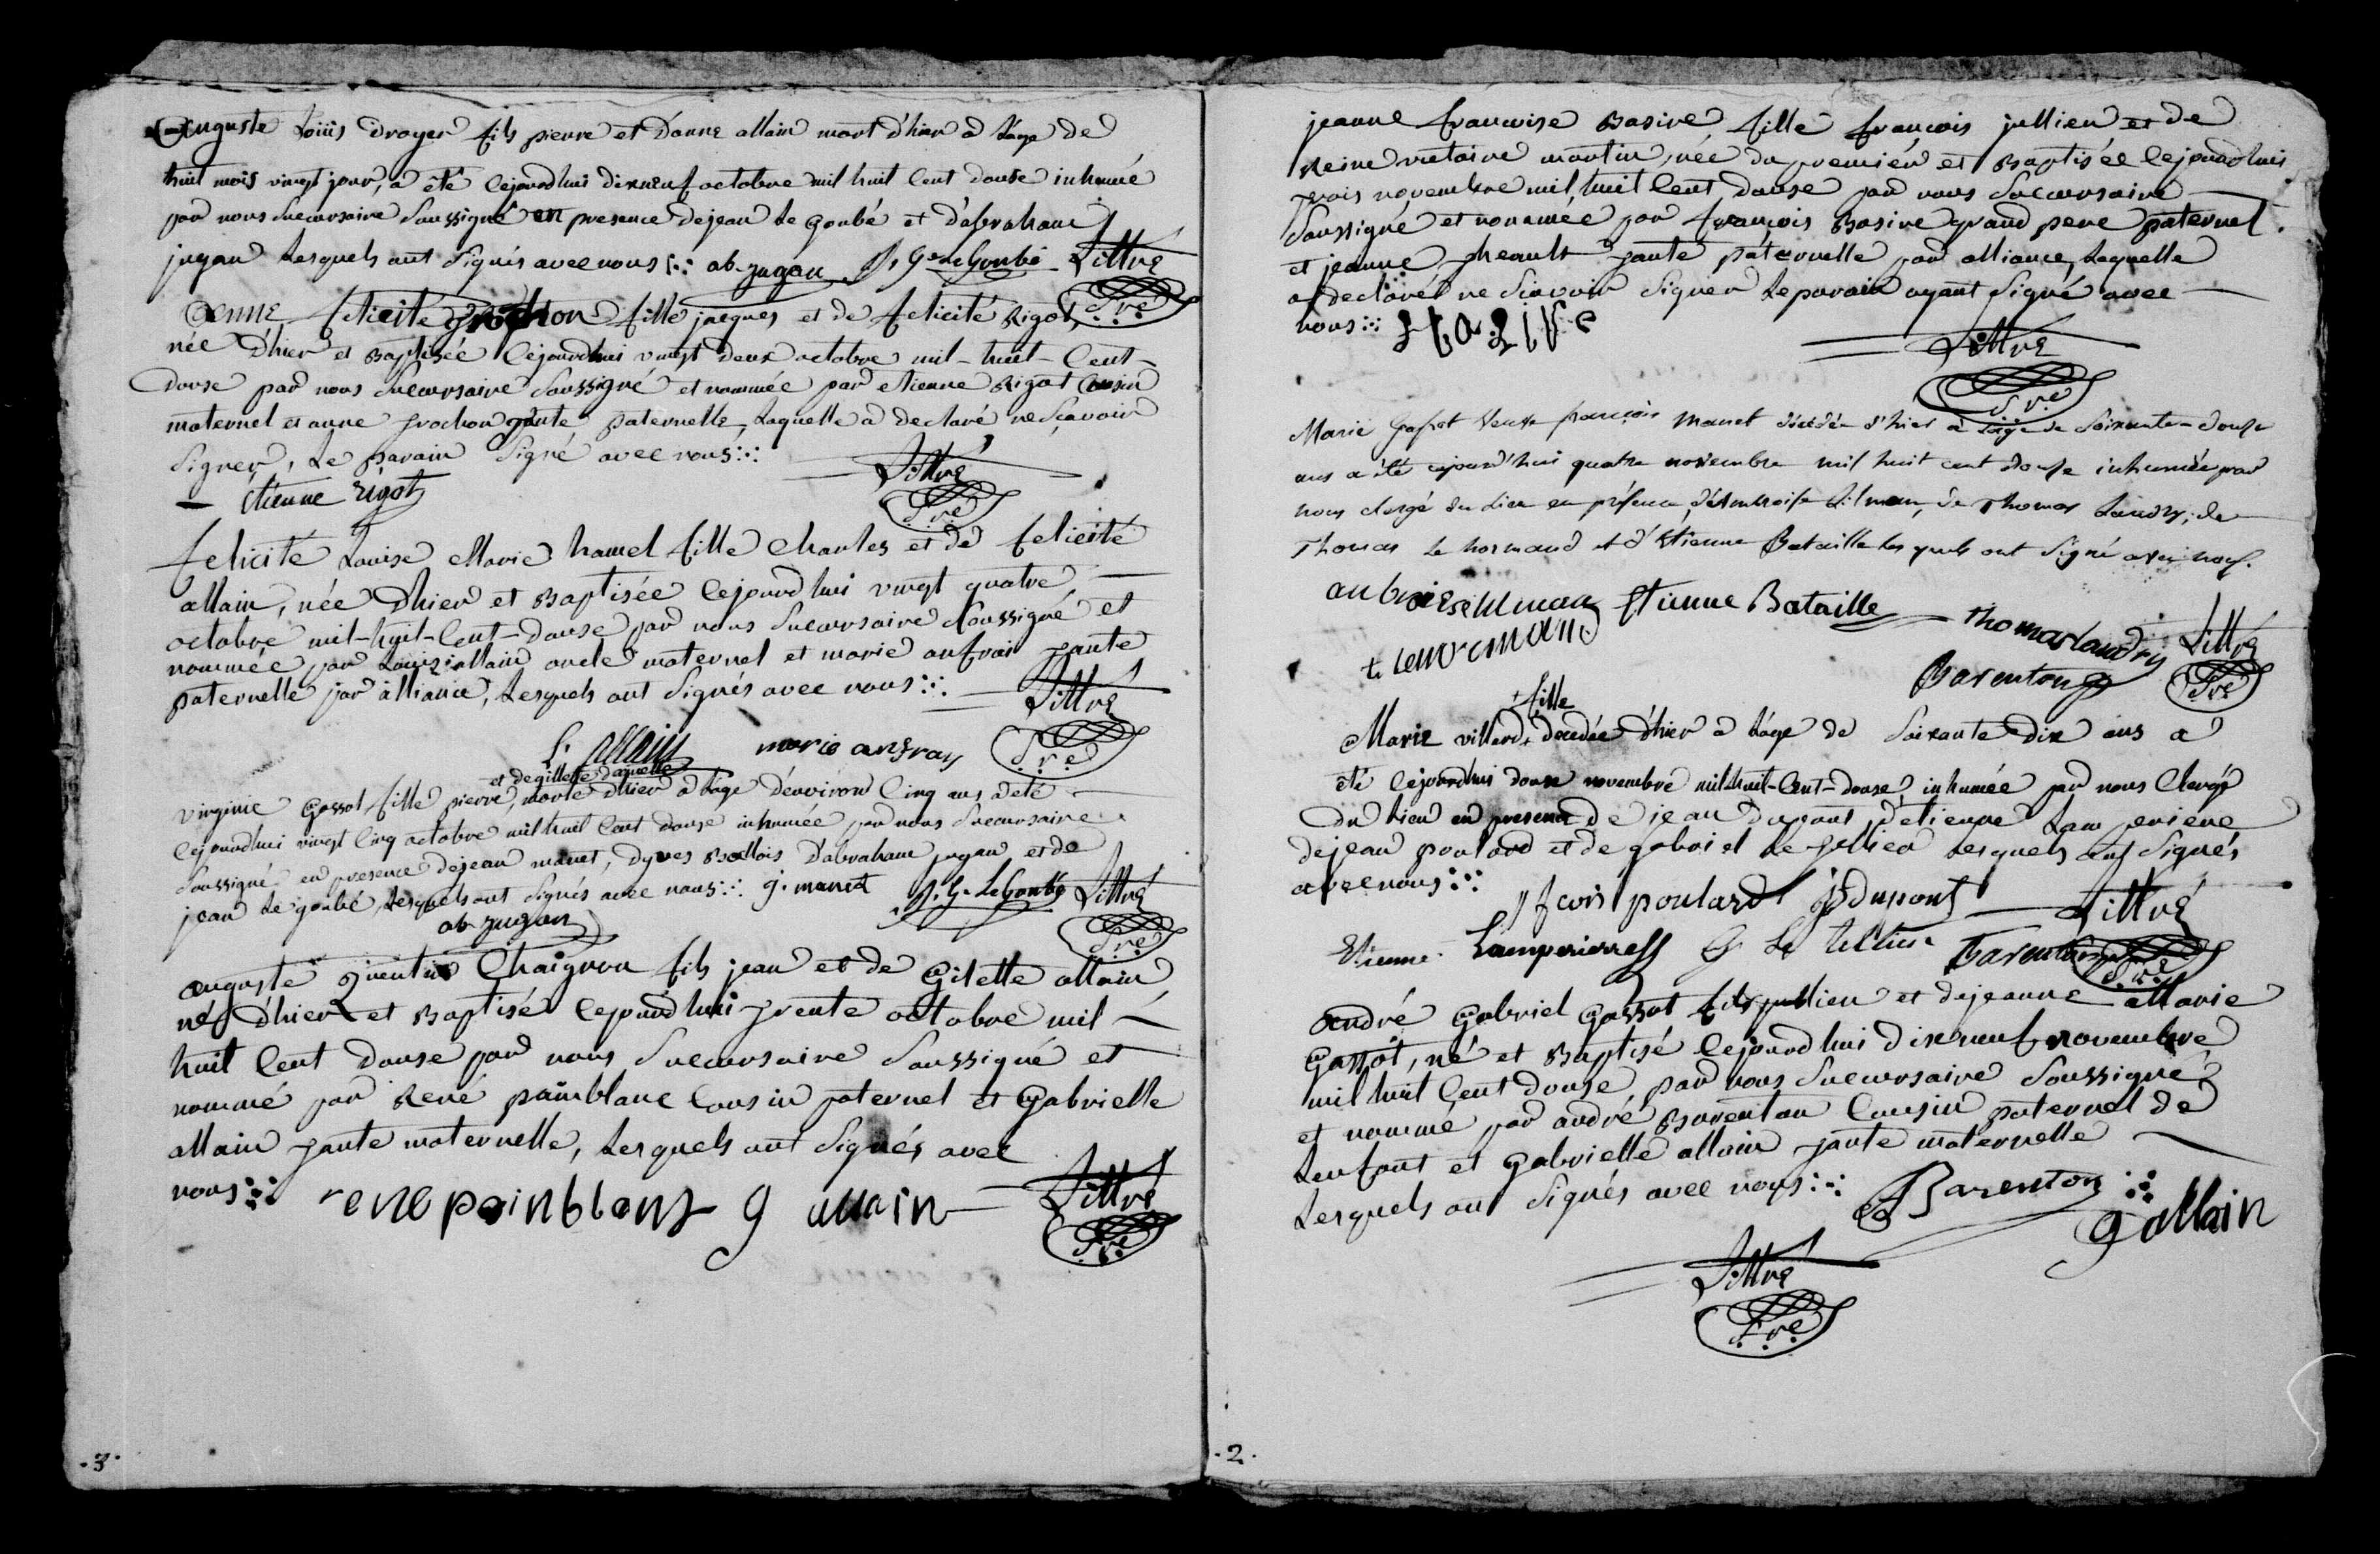 auguste Loüis Droyer fils pierre et d'anne allain mort d'hier a l'age de
huit mois vingt jour, a été cejourdhui dixneuf octobre mil huit Cent douse inhumé
par nous Succursaire Soussigné en presence de jean Le Goubé et d'abraham
jugan Lesquels ont Signés avec nous ab-jugan J. G. Le Goubé Littré
Pre
anne felicité grochon fille jacques et de felicité Rigot,
née D'hier et Baptisée Cejourdhui vingt deux octobre mil-huit-Cent-
Douse par nous Succursaire Soussigné et nommée par etienne Rigot Cousin
maternel et anne grochon tante paternelle, Laquelle a declaré ne Sçavoir
Signer, Le parain Signé avec nous Littré
etienne rigot Pre
felicité Louise Marie hamel fille Charles et de felicité
allain, née D'hier et Baptisée Cejourdhui vingt quatre
octobre mil-huit-Cent-Douse par nous Succursaire Soussigné et
nommée par Louis allain oncle maternel et marie anfrai tante
paternelle par alliance, Lesquels ont Signés avec nous Littré
L. allain marie anfray Pre
et de gillette
virginie Gassot fille pierre, morte D'hier a l'age D'environ Cinq ans a été
Cejourdhui vingt Cinq octobre mil huit Cent douse inhumée par nous Succursaire
Soussigné en presence de jean manet, D'yves D'abraham jugan et de
jean Le goubé, Lesquels ont Signés avec nous j. manet J. G. Le Goubé Littré
ab-jugan Pre
auguste Quentin Chaignon fils jean et de Gilette allain
né D'hier et Baptisé Cejourdhui trente octobre mil
huit Cent Douse par nous Succursaire Soussigné et
nommé par René painblanc Cousin paternel et Gabrielle
allain tante maternelle, Lesquels ont Signés avec
nous rene painblanc g allain Littré
Pre
.3.
jeanne francoise Basire fille francois jullien et de
Reine victoire martin, née du premier et Baptisée Cejourdhui
trois novembre mil huit Cent douse par nous Succursaire
Soussigné et nommée par françois Basire grand pere paternel
et jeanne heault tante paternelle par alliance, Laquelle
a declaré ne Sçavoir Signer Le parain ayant Signé avec
nous Littré
Pre
Marie veuve françois Manet décédée d'hier a l'age de Soixante-douze
ans a été cejourd'hui quatre novembre mil huit cent douze inhumée par
nous clergé du lieu en présence d'Ambroise de Thomas Landry, de
Thomas le normand et d'Etienne Bataille lesquels ont Signé avec nous.
Etienne Bataille Thomas landry Littré
t. lenormand Barenton Pre
+ fille
Marie villard + decedée D'hier a L'age de Soixante Dix ans a
été Cejourdhui douse novembre mil-huit-Cent-douse inhumée par nous Clergé
Du Lieu en presence de jean Dupont, D'etienne Lamperiere
de jean poulard et de gabriel Le tellier Lesquels ont Signés
avec nous
poulard Dupont Littré
Etienne Lamperierre G Le tellier Barenton Pre
André Gabriel Gassot fils jullien et de jeanne Marie
Gassot, né et Baptisé Cejourdhui dixneuf novembre
mil huit Cent Douse par nous Succursaire Soussigné
et nommé par andré Barenton Cousin paternel de
Lenfant et Gabrielle allain tante maternelle
Lesquels ont Signés avec nous Barenton
g allain
Littré
Pre
.2.